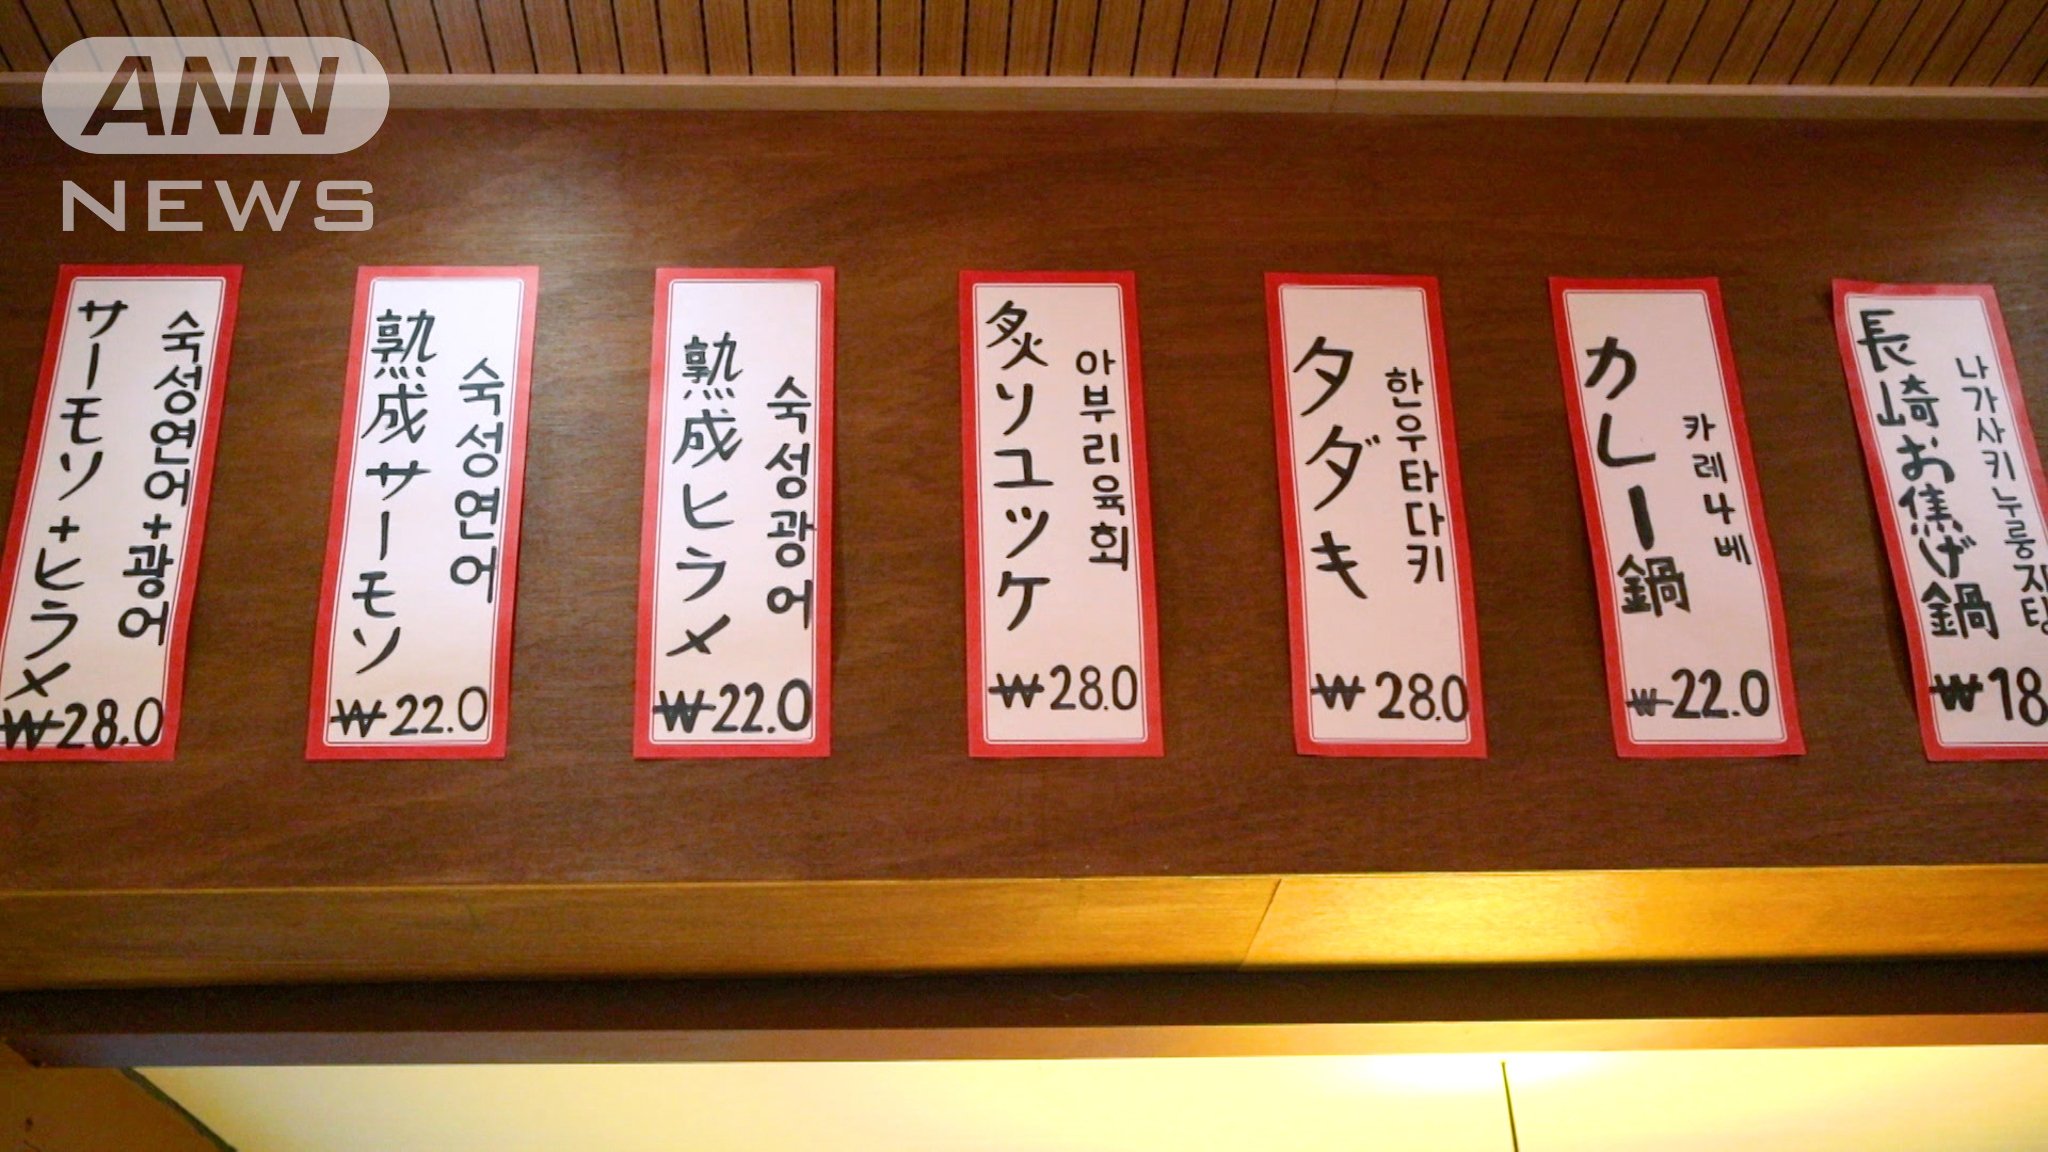 ANN
NEWS
サーモソ+ヒラメ
숙성연어+광어
₩28.0
熟成サーモソ
숙성연어
₩22.0
熟成ヒラメ
숙성광어
₩22.0
炙ソユッケ
아부리육회
₩28.0
タダキ
한우타다키
₩28.0
カレー鍋
카레나베
₩22.0
長崎お焦げ鍋
나가사키누룽지탕
₩18